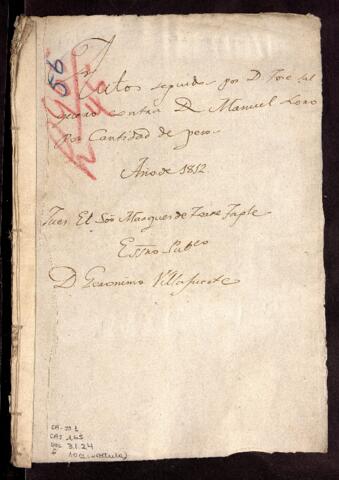 56
Autos seguidos por D. Jose Sal
guero contra D. Manuel Loro
Por Cantidad de pesos
Año de 1812.
Juez El Sor Marques de Torre Tagle
Essno Pubco
D Geronimo Villafuerte
CA-JO 1
CAJ 165
DOC 31.24